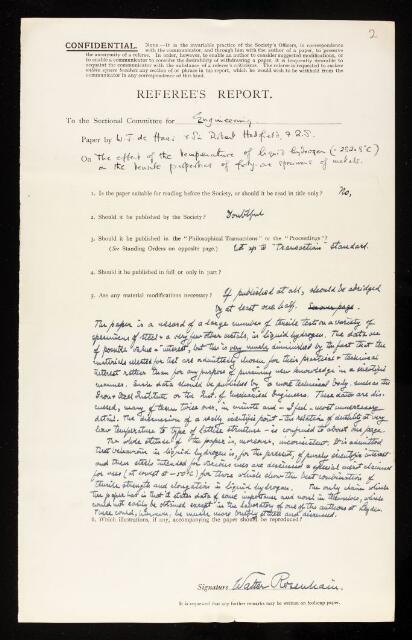 2
CONFIDENTIAL. NOTE—It is the invariable practice of the Society's Officers, in correspondence
with the communicator, and through him with the author of a paper, to preserve
the anonymity of a referee. In order, however, to enable an author to consider suggested modifications, or
to enable a communicator to consider the desirability of withdrawing a paper, it is frequently desirable to
acquaint the communicator with the substance of a referee's criticisms. The referee is requested to enclose
within square brackets any section or phrase in his report, which he would wish to be withheld from the
communicator in any contingency of this kind.
REFEREE'S REPORT.
To the Sectional Committee for Engineering
Paper by W. J. de Haas & Sir Robert Hadfield, F.R.S.
On The effect of the temperature of liquid hydrogen (-252.8°C)
on the tensile properties of forty-one specimens of metals.
1. Is the paper suitable for reading before the Society, or should it be read in title only? No,
2. Should it be published by the Society? Doubtful
3. Should it be published in the "Philosophical Transactions" or the "Proceedings"?
(See Standing Orders on opposite page.) up to "Transaction" standard.
4. Should it be published in full or only in part?
5. Are any material modifications necessary? If published at all, should be abridged
by at least one half.
The paper is a record of a large number of tensile tests on a variety of
specimens of steel & a very few other metals, in liquid hydrogen. The data are
of possible value & interest, but this is very much diminished by the fact that the
materials selected for test are admittedly chosen for their practical & technical
interest rather than for any purpose of pursuing new knowledge in a scientific
manner. Such data should be published by a more technical body, such as the
Iron & Steel Institute or the Inst. of Mechanical Engineers. These data are dis-
cussed, many of them twice over, in minute and – I feel – most unnecessary
detail. The discussion of a really scientific point – the relation of ductility at very
low temperature to type of lattice structure – is confined to about one page.
The whole attitude of the paper is, moreover, inconsistent. It is admitted
that behaviour in liquid hydrogen is, for the present, of purely scientific interest
and then steels intended for various uses are discussed & special merit claimed
for uses (at lowest at -50°C) for those which show the best combination of
tensile strength and elongation in liquid hydrogen. The only claim which
the paper has is that it states data of some importance and novel in themselves, which
could not easily be obtained except in the laboratory of one of the authors at Leyden.
These could, however, be much more briefly stated and discussed.
6. Which illustrations, if any, accompanying the paper should be reproduced?
Signature Walter Rosenhain.
It is requested that any further remarks may be written on foolscap paper.